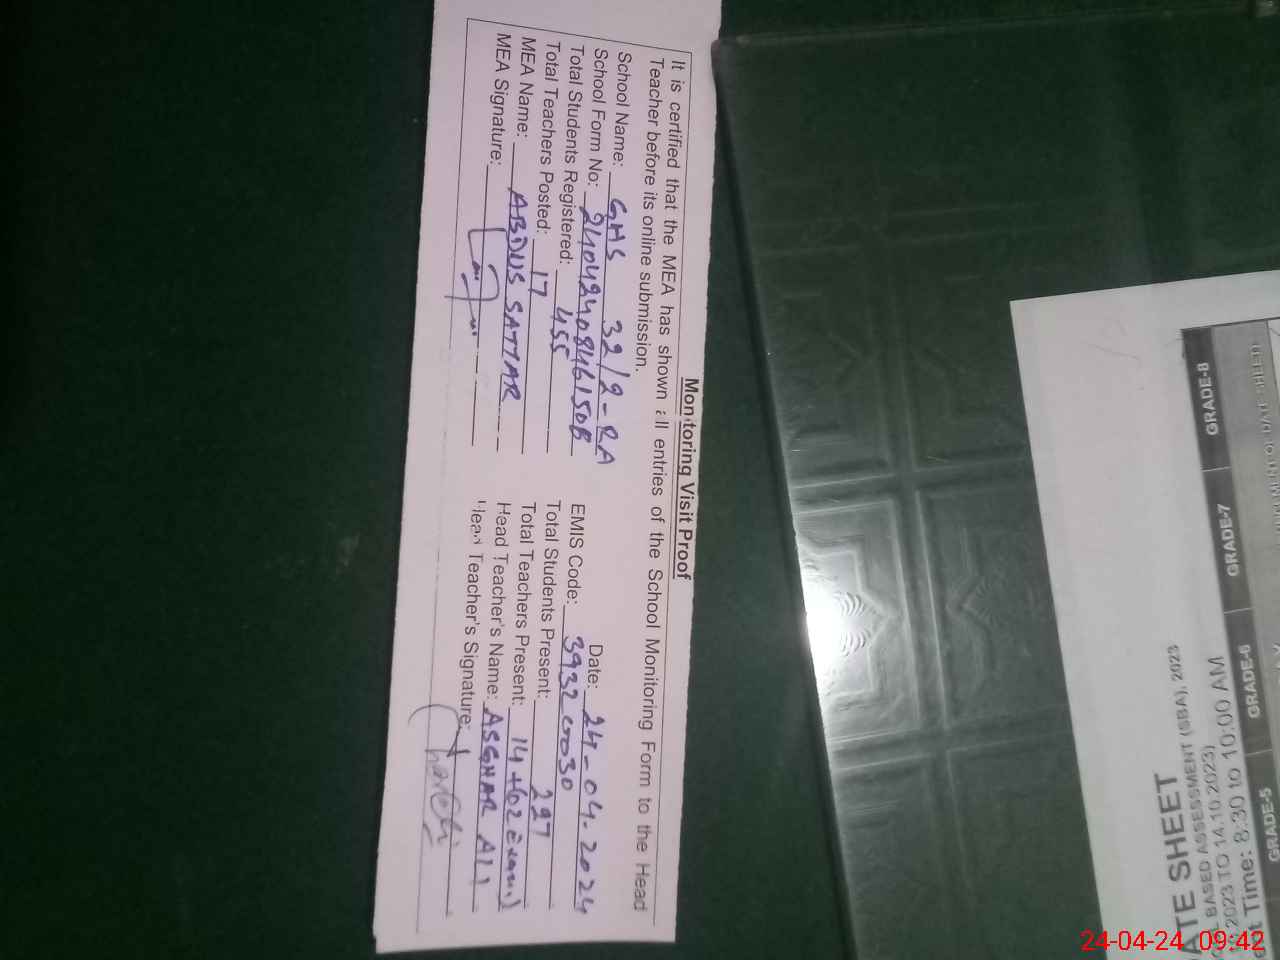 Monitoring Visit Proof
It is certified that the MEA has shown all entries of the School Monitoring Form to the Head
Teacher before its online submission.
Date: 24-04-2024
School Name: GHS 32/2-RA EMIS Code: 39320030
School Form No: 2404240846150B Total Students Present: 297
Total Students Registered: 455 Total Teachers Present: 14+(02 Exam)
Total Teachers Posted: 17 Head Teacher's Name: ASGHAR ALI
MEA Name: ABDUS SATTAR Head Teacher's Signature:
MEA Signature:
DATE SHEET
BASED ASSESSMENT (SBA), 2023
2023 TO 14.10.2023)
Time: 8:30 to 10:00 AM
GRADE-5 GRADE-6 GRADE-7 GRADE-8
24-04-24 09:42